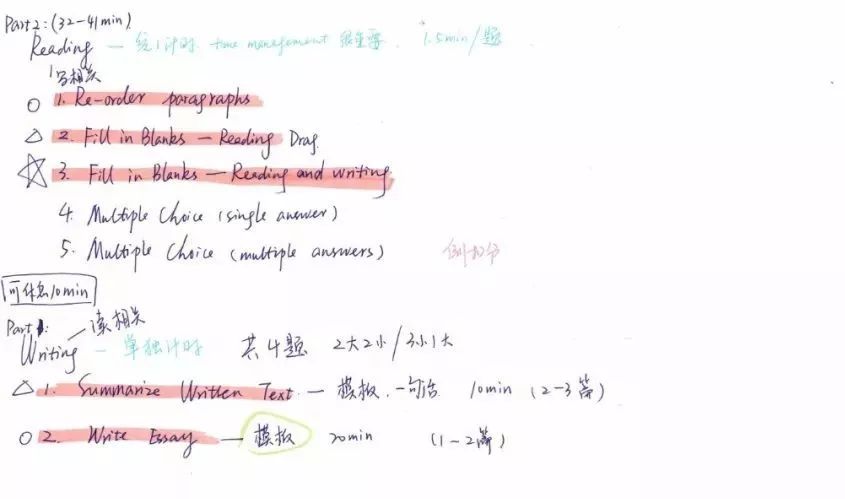 Part 2: (32-41min)
Reading — 统一计时 time management 很重要. 1.5min/题
写相关
1. Re-order paragraphs
2. Fill in Blanks — Reading Drag
3. Fill in Blanks — Reading and writing
4. Multiple Choice (single answer)
5. Multiple Choice (multiple answers) 倒扣分
可休息10min
Part 1: 读相关
Writing — 单独计时 共4题 2大2小/3小1大
1. Summarize Written Text — 模板. 一句话 10min (2-3篇)
2. Write Essay — 模板 20min (1-2篇)